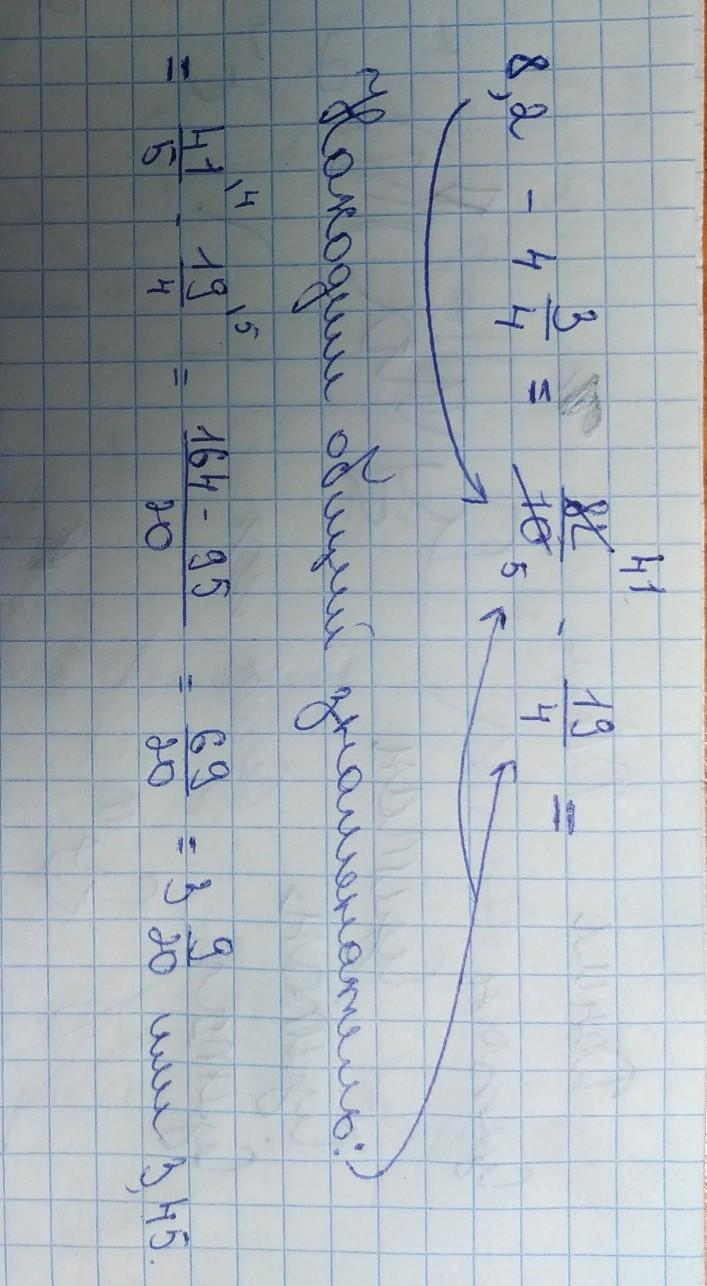 8,2 - 4 3/4 = 82/10 41 5 - 19/4 =
Находим общий знаменатель:
= 41/5 ,4 - 19/4 ,5 = 164 - 95/20 = 69/20 = 3 9/20 или 3,45.